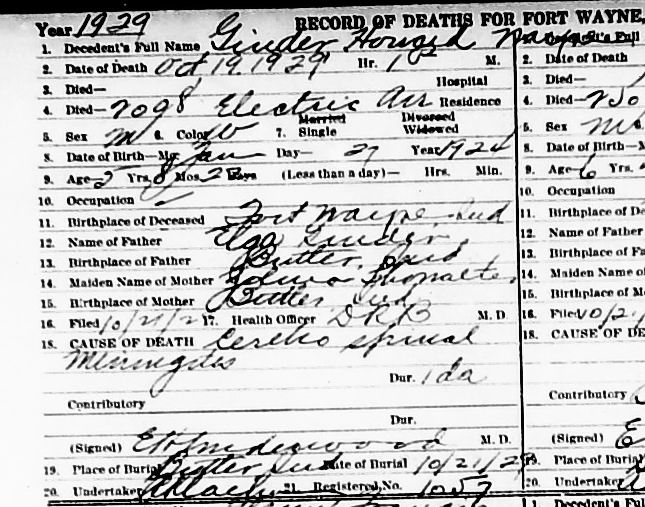 Year 1929 RECORD OF DEATHS FOR FORT WAYNE,
1. Decedent's Full Name Ginder Howard
2. Date of Death Oct 19. 1929 Hr. 1 M.
3. Died— Hospital
4. Died— 2098 Electric Ave Residence
5. Sex M 6. Color W 7. Married Single Divorced Widowed
8. Date of Birth—Mo. Jan Day— 27 Year 1924
9. Age— 5 Yrs. 8 Mos. 22 Days (Less than a day)— Hrs. Min.
10. Occupation ✓
11. Birthplace of Deceased Fort Wayne, Ind
12. Name of Father Ginder
13. Birthplace of Father Butler, Ind
14. Maiden Name of Mother
15. Birthplace of Mother Butler Ind
16. Filed 10/21/29 17. Health Officer DRB M. D.
18. CAUSE OF DEATH Cerebro spinal
Meningites
Dur. 1 da
Contributory
Dur.
(Signed) M. D.
19. Place of Burial Butler Ind Date of Burial 10/21/29
20. Undertaker 21. Registered, No. 1057
1. Decedent's Full
2. Date of Death
3. Died—
4. Died— 250
5. Sex M
8. Date of Birth—M
9. Age— 6 Yrs.
10. Occupation
11. Birthplace of De
12. Name of Father
13. Birthplace of Fat
14. Maiden Name of
15. Birthplace of Mo
16. Filed 10/2
18. CAUSE OF DE
Contributory
(Signed) E
19. Place of Burial
20. Undertaker
1. Decedent's Full